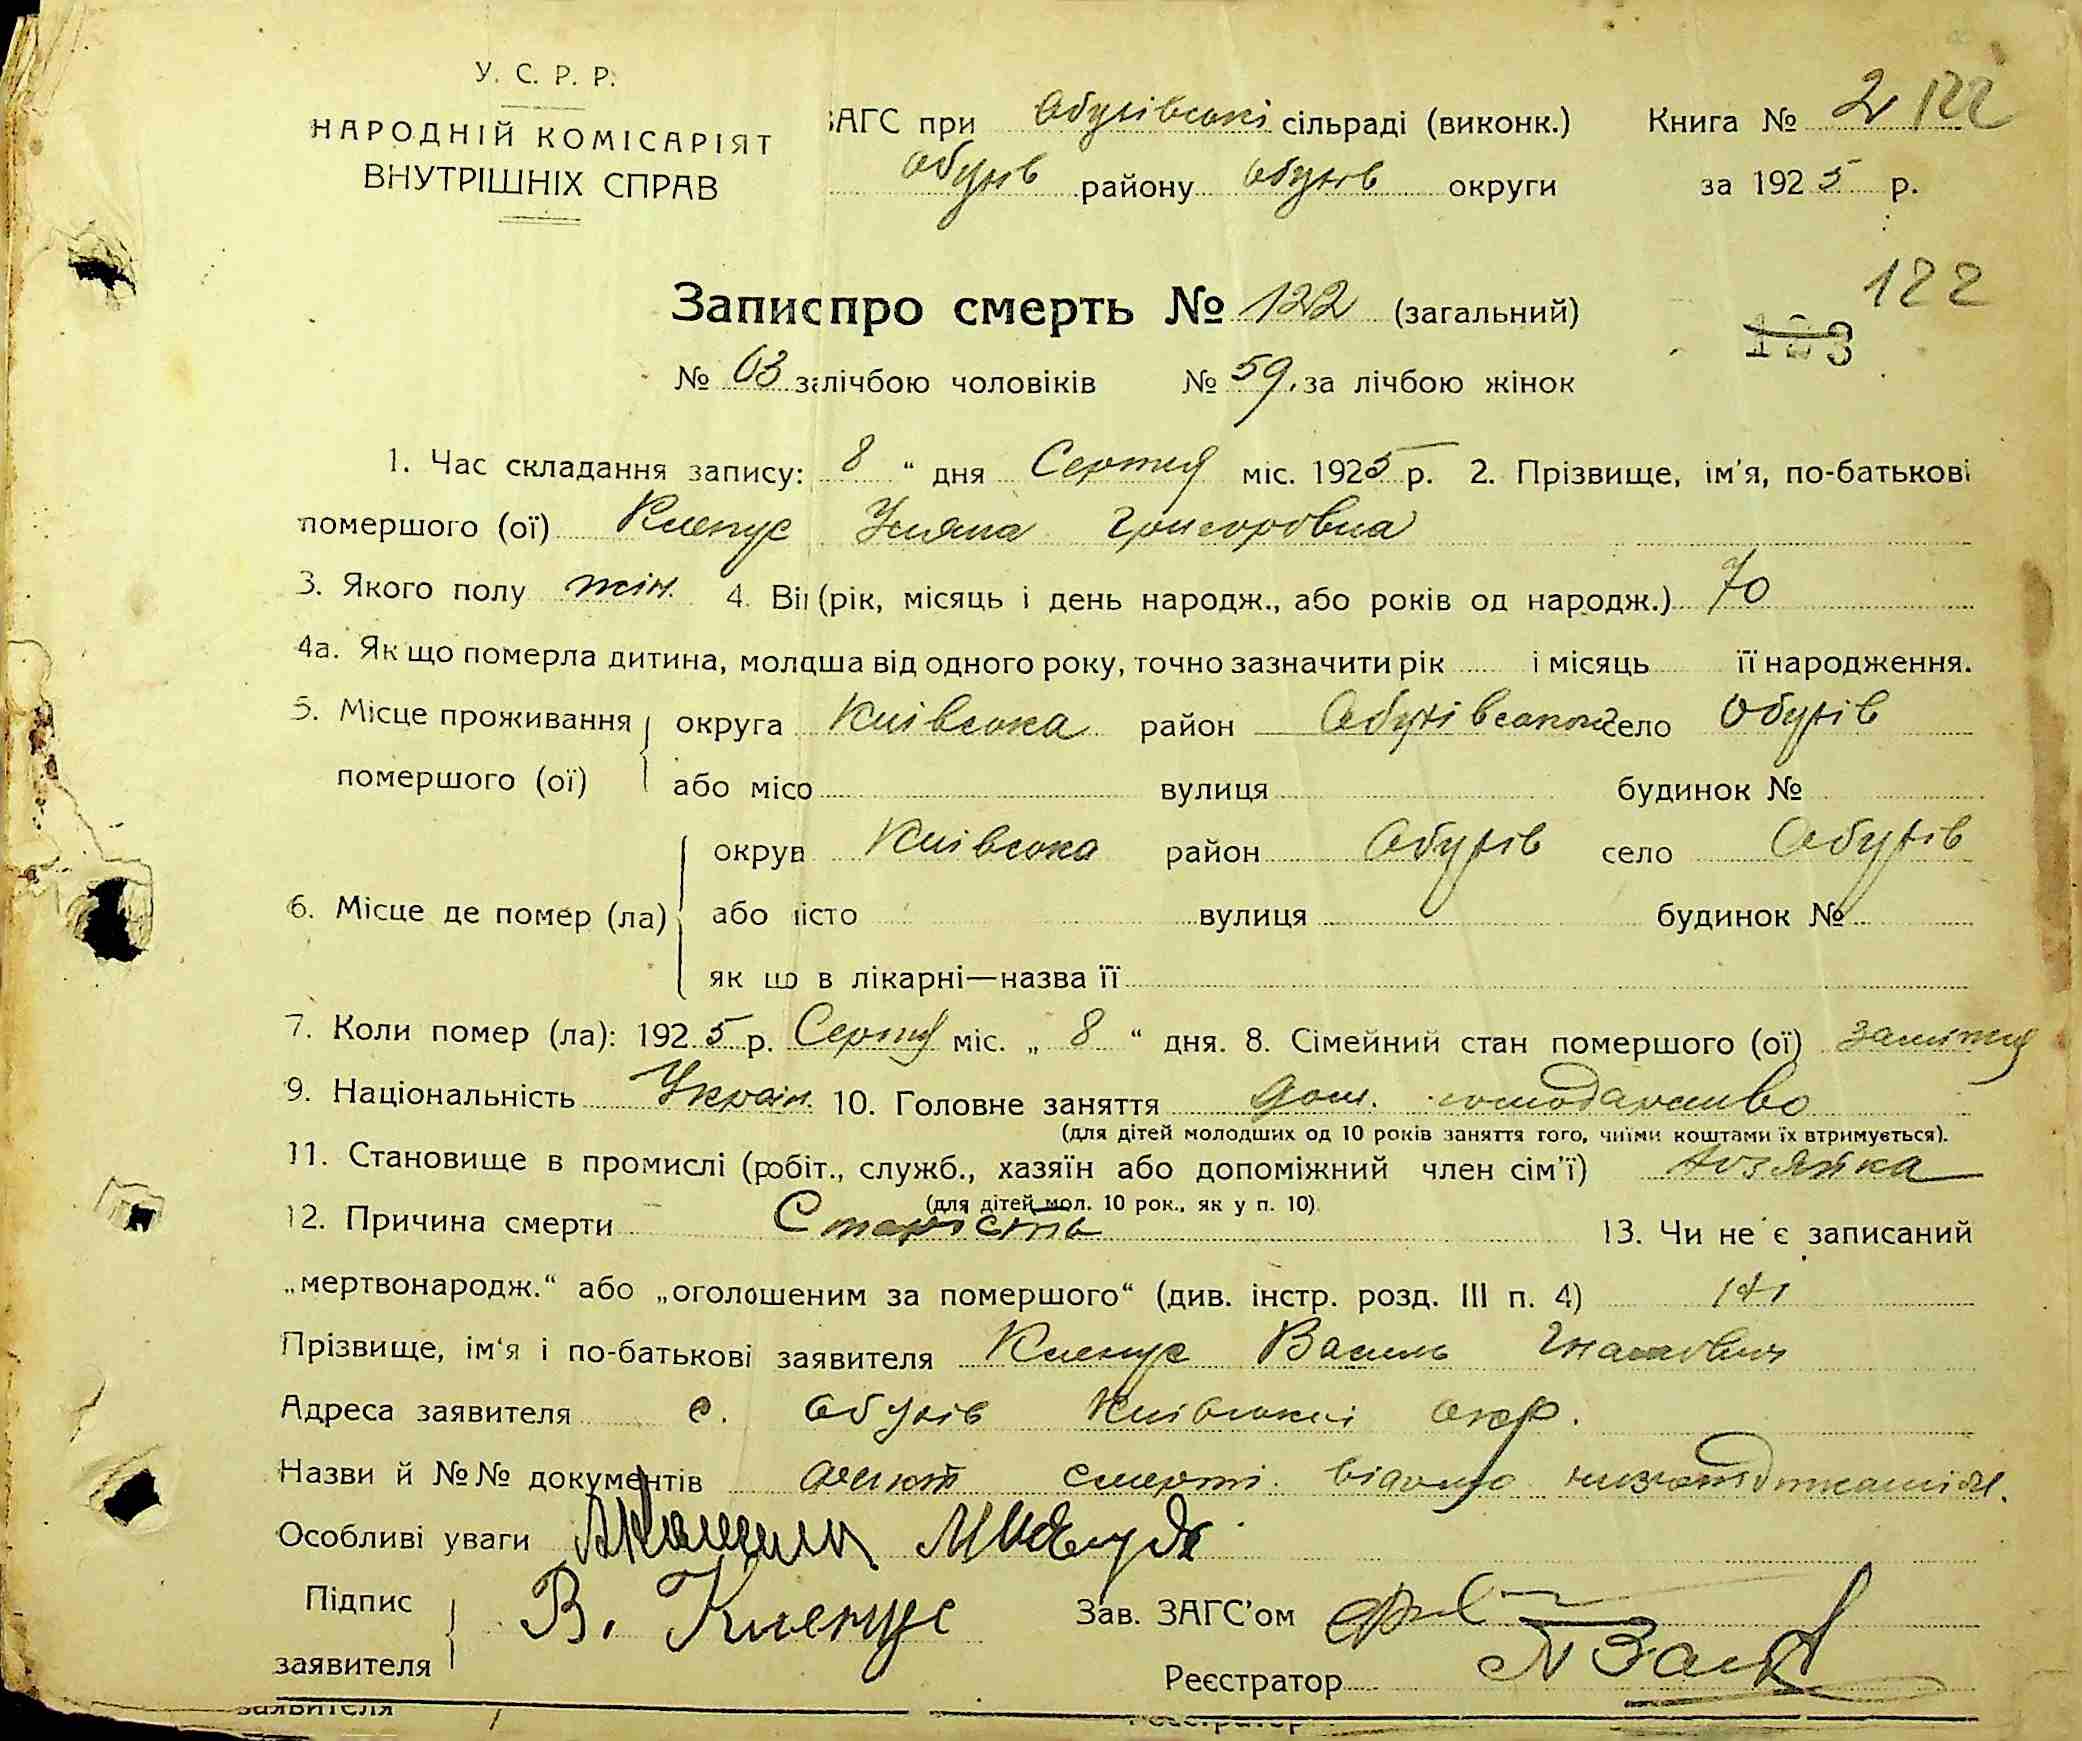 У. С. Р. Р.
НАРОДНІЙ КОМІСАРІЯТ
ВНУТРІШНІХ СПРАВ
ЗАГС при Обухівські сільраді (виконк.) Книга № 2 122
Обухів району Обухів округи за 1925 р.
122
Запис про смерть № 122 (загальний)
123
№ 63 за лічбою чоловіків № 59 за лічбою жінок
1. Час складання запису: 8 “ дня Серпня міс. 1925 р. 2. Прізвище, ім'я, по-батькові
помершого (ої) Клепус Уляна Григоровна
3. Якого полу жін. 4. Вік (рік, місяць і день народж., або років од народж.) 70
4а. Як що померла дитина, молодша від одного року, точно зазначити рік і місяць її народження.
5. Місце проживання округа Київська район Обухівський село Обухів
помершого (ої) або місто вулиця будинок №
округа Київська район Обухів село Обухів
6. Місце де помер (ла) або місто вулиця будинок №
як що в лікарні—назва її
7. Коли помер (ла): 1925 р. Серпня міс. „ 8 “ дня. 8. Сімейний стан помершого (ої) заміжня
9. Національність Україн. 10. Головне заняття дом. господарство
(для дітей молодших од 10 років заняття того, чиїми коштами їх втримується).
11. Становище в промислі (робіт., служб., хазяїн або допоміжний член сім'ї) хозяйка
(для дітей мол. 10 рок., як у п. 10)
12. Причина смерти Старість 13. Чи не є записаний
„мертвонародж.“ або „оголошеним за помершого“ (див. інстр. розд. III п. 4) ні
Прізвище, ім'я і по-батькові заявителя Клепус Василь Гнатович
Адреса заявителя с. Обухів Київської окр.
Назви й №№ документів факт смерті відомо нижепідписаним.
Особливі уваги
Підпис
заявителя В. Клепус Зав. ЗАГС'ом
Реєстратор
заявителя
Реєстратор